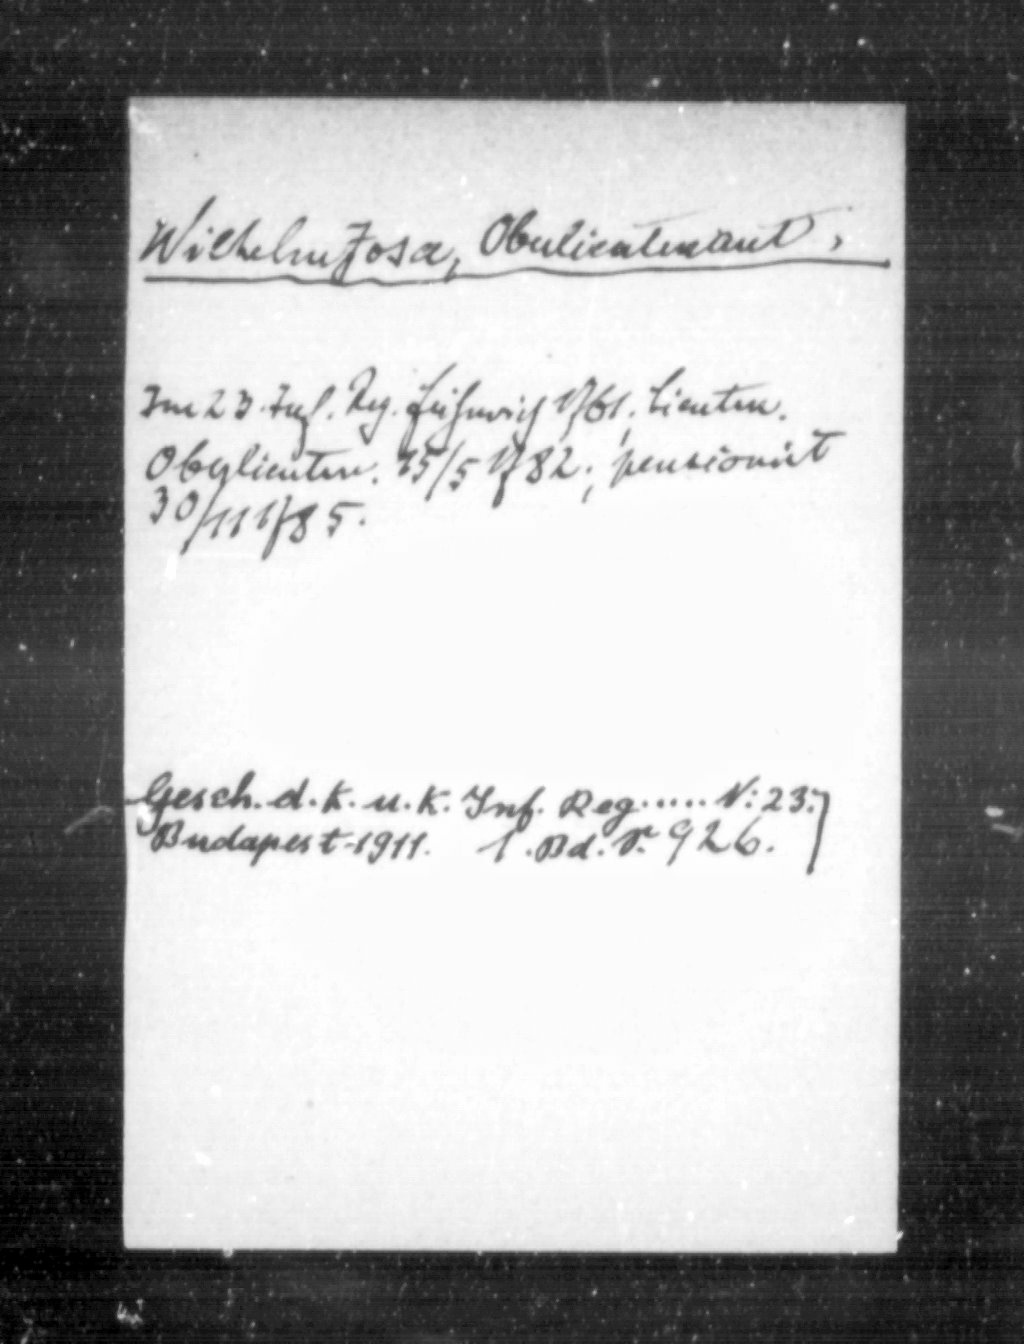 Wilhelm Josa, Oberlieutenant,
Im 23. Inf. Reg. Fähnrich 1761, Lieuten.
Oberlieuten. 15/5 1782; pensionirt
30/11 1785.
Gesch. d. k. u. k. Inf. Reg..... N: 23.
Budapest-1911. 1. Bd. S. 926.